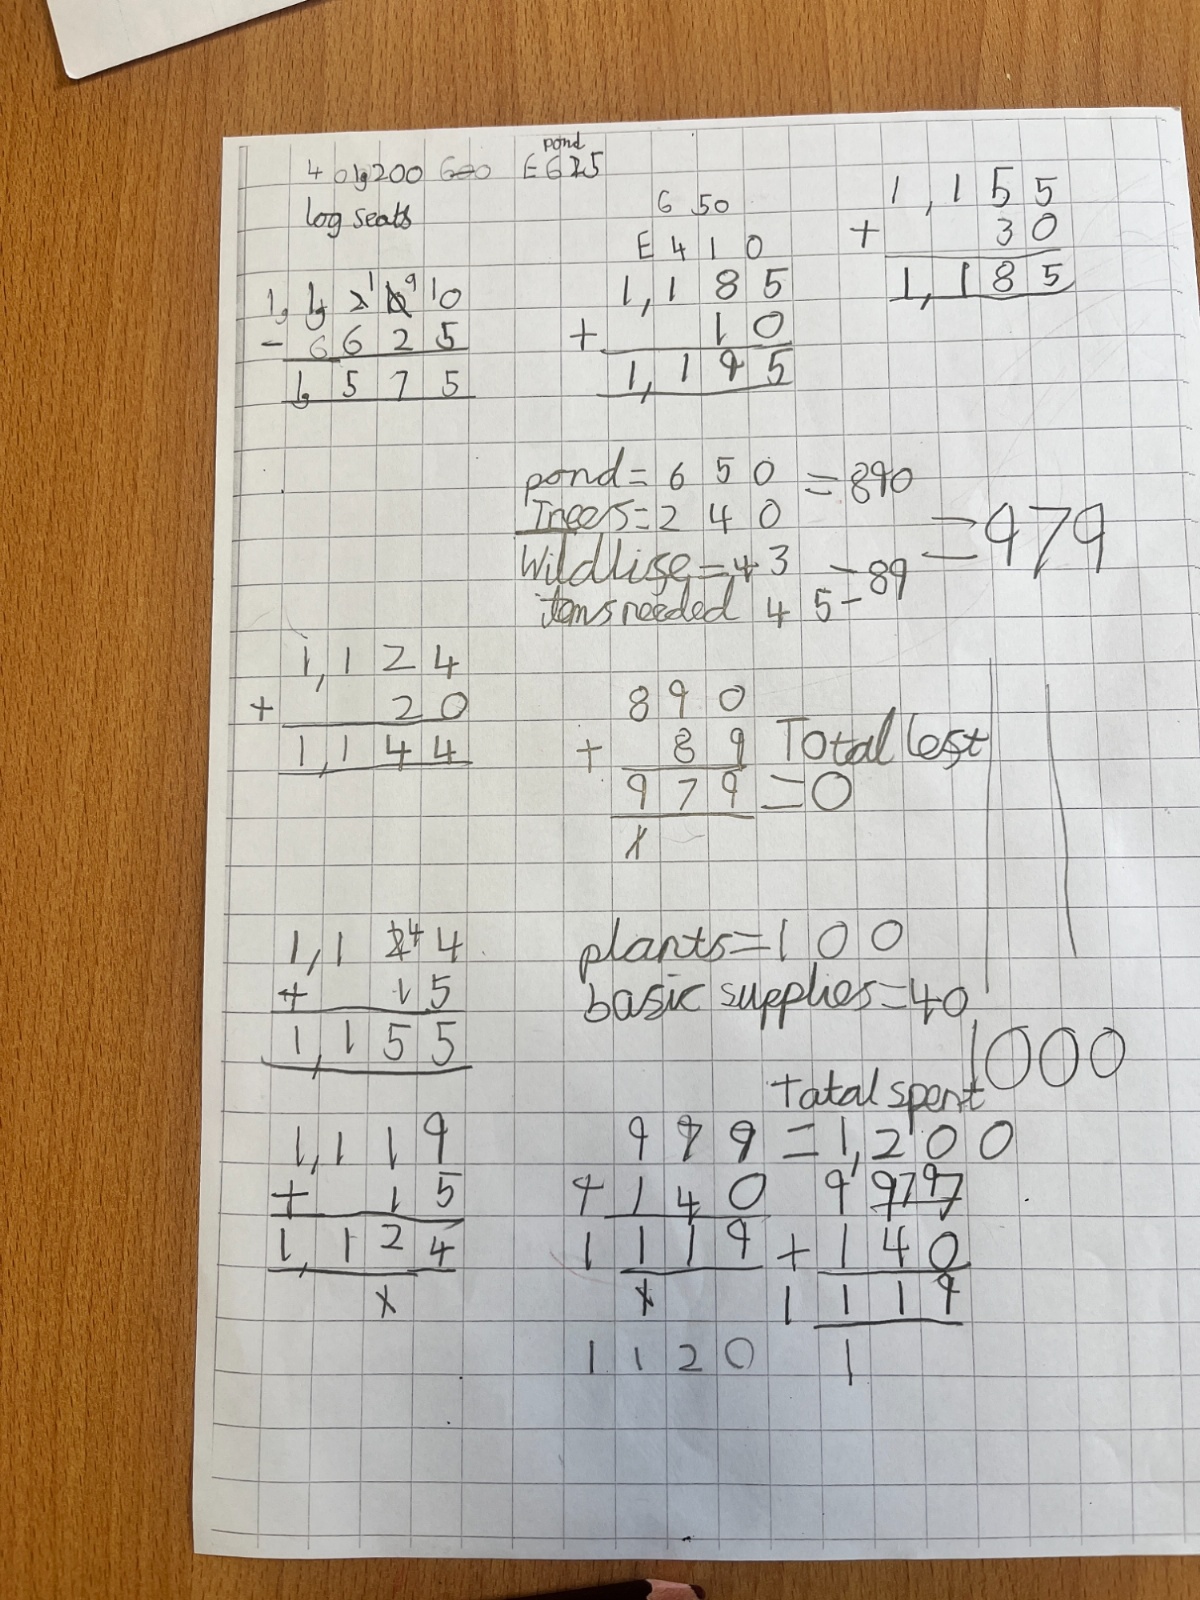 pond
200 600 £625
log seats
1,1 2 1 9 10
- 6 6 2 5
1, 5 7 5
6 50
£ 4 1 0
1,1 8 5
+ 1 0
1,1 9 5
1,1 5 5
+ 3 0
1,1 8 5
pond = 6 5 0 = 890
Trees = 2 4 0
= 979
Wildlise = 43 = 89
items needed 4 5 -
1,1 2 4
+ 2 0
1,1 4 4
8 9 0
+ 8 9 Total lest
9 7 9 = 0
1
1,1 4 4
+ 1 5
1,1 5 5
plants = 1 0 0
basic supplies = 40
1000
Tatal spent
1,1 1 9
+ 1 5
1,1 2 4
1
9 7 9 = 1,2 0 0
+ 1 4 0
1 1 1 9
1
1 1 2 0
9 9797
+ 1 4 0
1 1 1 9
1